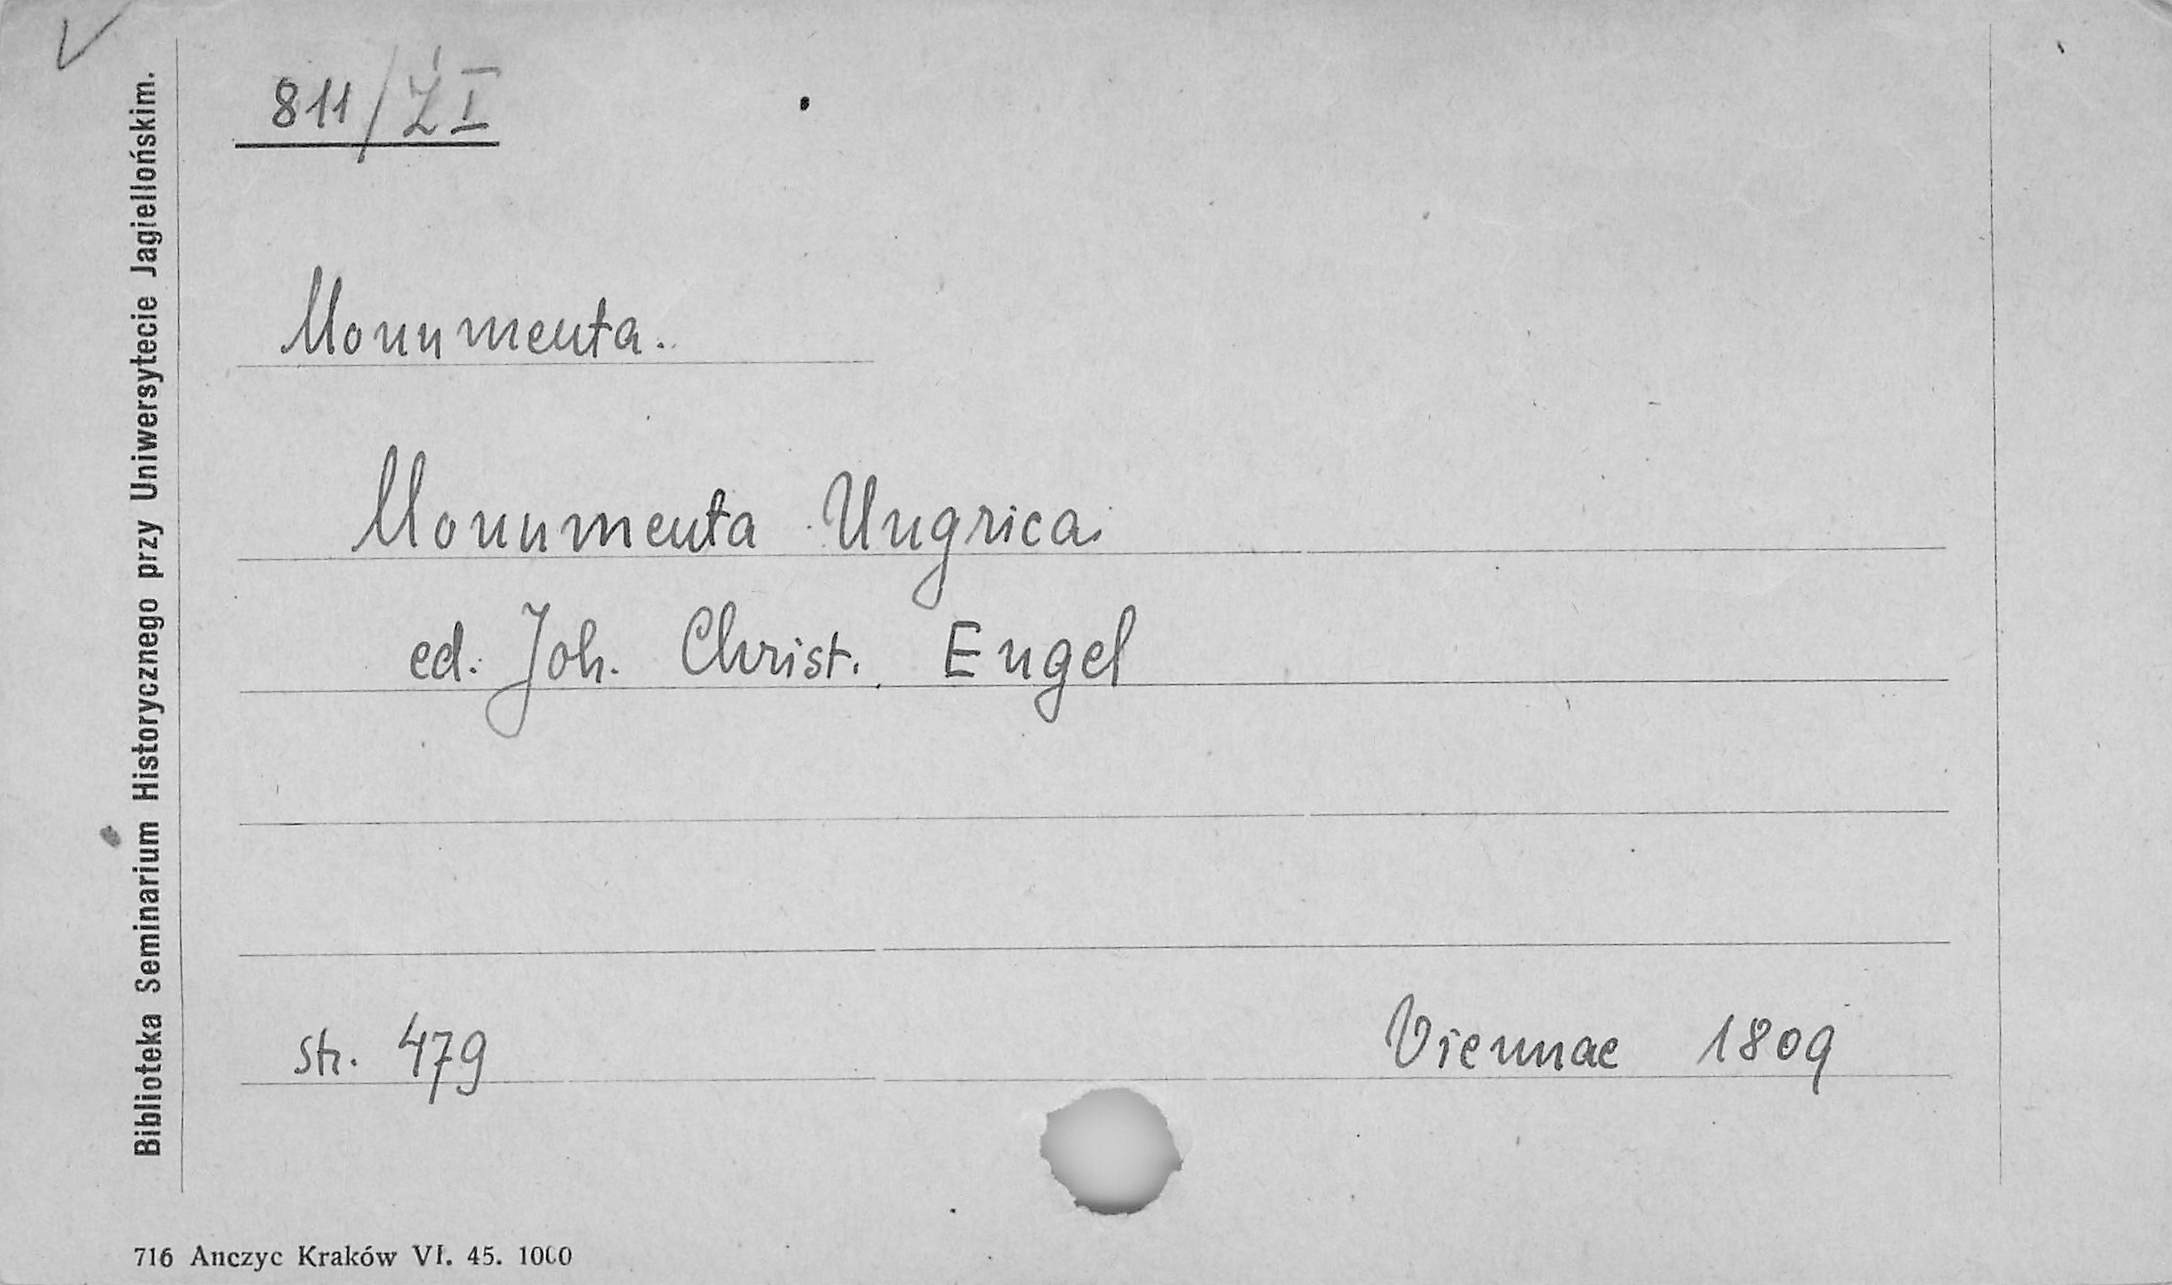 811/Ż I
Monumenta.
Monumenta Ungrica
ed. Joh. Christ. Engel
str. 479 Viennae 1809
Biblioteka Seminarium Historycznego przy Uniwersytecie Jagiellońskim.
716 Anczyc Kraków VI. 45. 1000